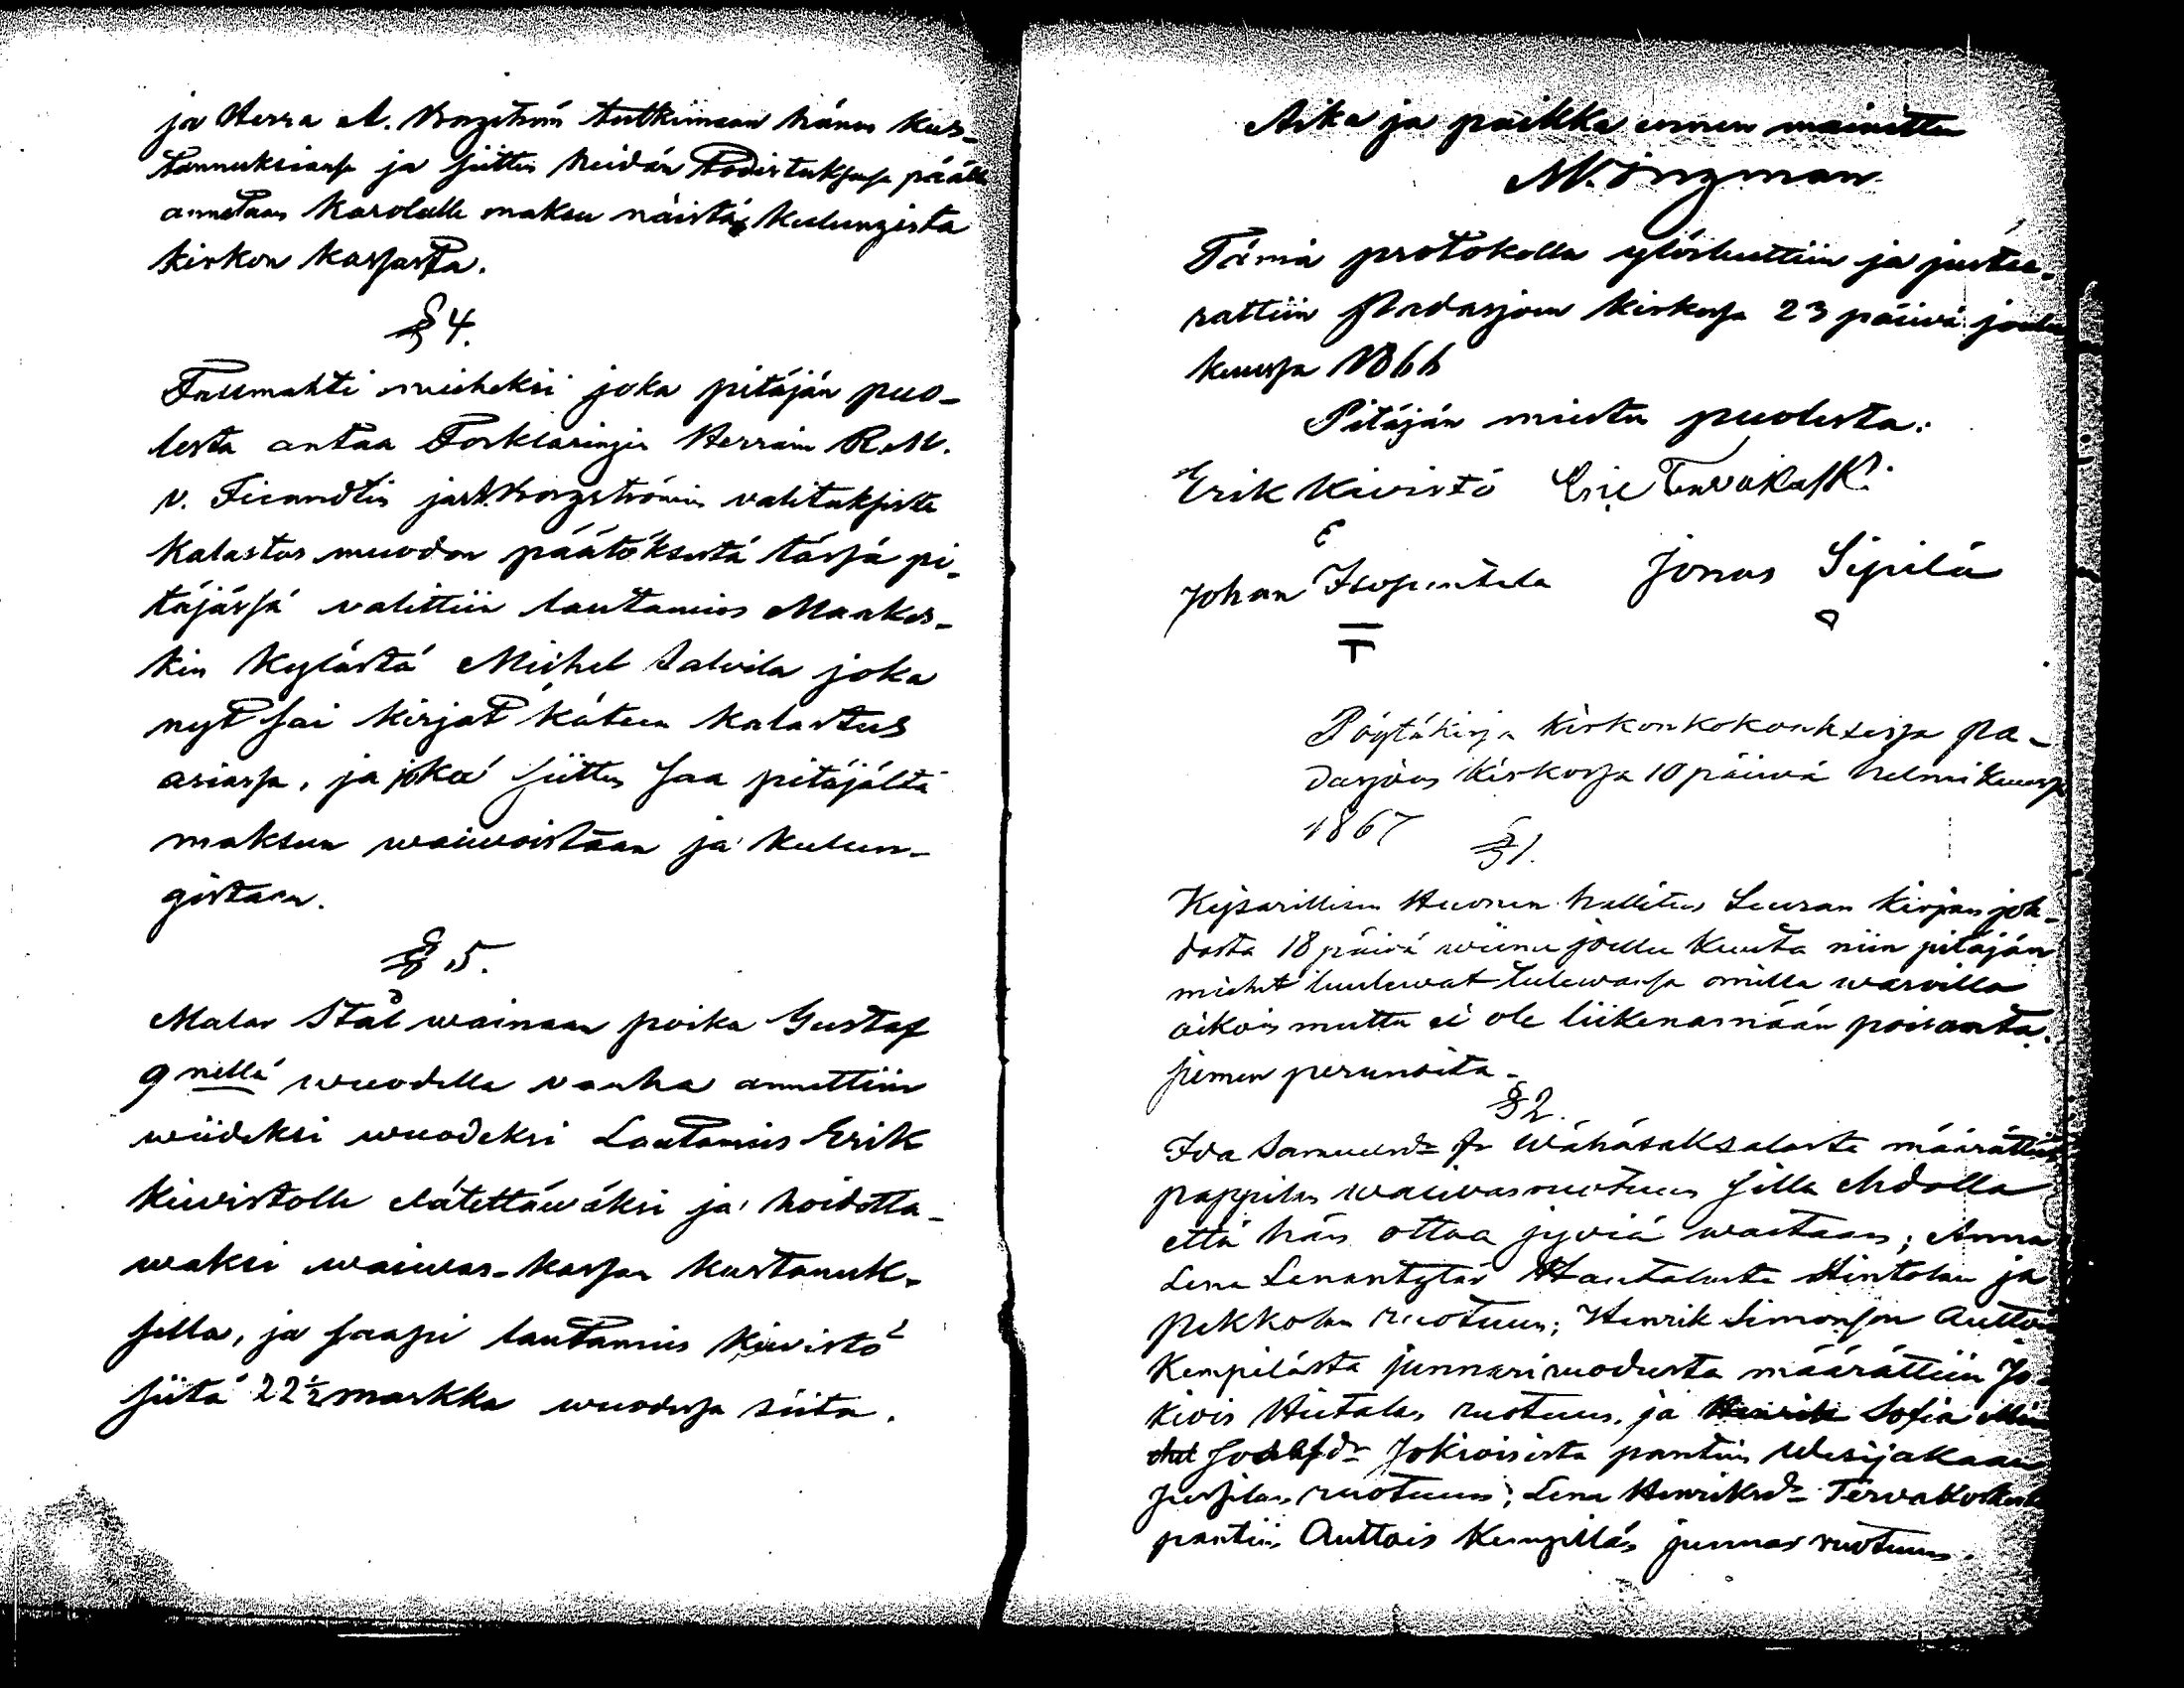 ja Herra A. Borgström tutkimaan hänen kus-
tannuksiansa ja sitten heidän Todistuksensa päälle
annetaan Karolalle maksu näistä kulungista
kirkon kassasta.
§ 4.
Fullmahti mieheksi joka pitäjän puo-
lesta antaa Forklaringin Herrain R. M.
v. Fieandtin ja A. Borgströmin valituksista
Kalastus muodon päätöksestä tässä pi-
täjässä valittiin lautamies Maakes-
kin kylästä Michel Salvila joka
nyt sai kirjat käteen kalastus
asiassa, ja joka sitten saa pitäjältä
maksun waiwoistaan ja kulun-
gistaan.
§ 5.
Malar Stål wainaan poika Gustaf
9 nellä wuodella vanha annettiin
wiideksi wuodeksi Lautamies Erik
Kiwistolle elätettäwäksi ja hoidetta-
waksi waiwas-kassan kustanuk-
sella, ja saapi lautamies Kiwistö
siitä 22½ markka wuodessa siita.
Aika ja paikka ennen mainittu
M. Ingman
Tämä protokolla ylösluettiin ja justee-
rattiin Padasjoen kirkossa 23 päiwä joulu
kuussa 1866
Pitäjän miesten puolesta:
Erik Kiwistö Eric
Johan Jonas Sipilä
Pöytäkirja kirkonkokouksessa Pa-
dasjoen kirkossa 10 päiwä helmikuussa
1867
§ 1.
Kejsarillisen Huonen hallitus Seuran kirjan joh-
dosta 18 päivä wiime joulu kuuta niin pitäjän
miehet luulewat tulewansa omilla waroilla
aikois mutta ei ole liikenamään poisanta
siemen perunoita.
§ 2.
Ida Samuelsdr Wähäsaksalasta määrättiin
pappilan waiwasruotuun sillä ehdolla
että hän ottaa jyviä wastaan; Anna
Lena Hautalasta Hintolan ja
Pekkolan ruotuun; Henrik Simonson Auttois
Kempilästä junnari ruodusta määrättiin Jo-
kiois Hietalan ruotuun, ja Henrik Sofia
Jokioisista pantiin Wesijakaan
Jussilan ruotuun; Lena Henriksdr Tervakoskesta
pantiin Auttois Kempilän junnar ruotuun.